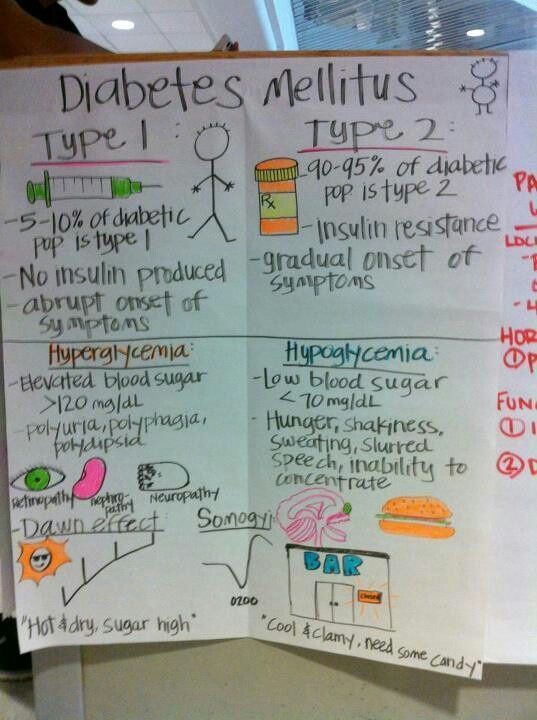 Diabetes Mellitus
Type 1:
-5-10% of diabetic
pop is type 1
-No insulin produced
-abrupt onset of
symptoms
Type 2:
Rx
-90-95% of diabetic
pop is type 2
-insulin resistance
-gradual onset of
symptoms
Hyperglycemia:
-Elevated blood sugar
>120 mg/dL
-polyuria, polyphagia,
polydipsia
Retinopathy
nephro-
pathy
Neuropathy
-Dawn effect:
"Hot & dry, sugar high"
Hypoglycemia:
-Low blood sugar
<70 mg/dL
-Hunger, shakiness,
sweating, slurred
speech, inability to
concentrate
Somogyi
0200
BAR
CLOSED
"Cool & clamy, need some candy"
PA
HOR
①P
FUN
①I
②D